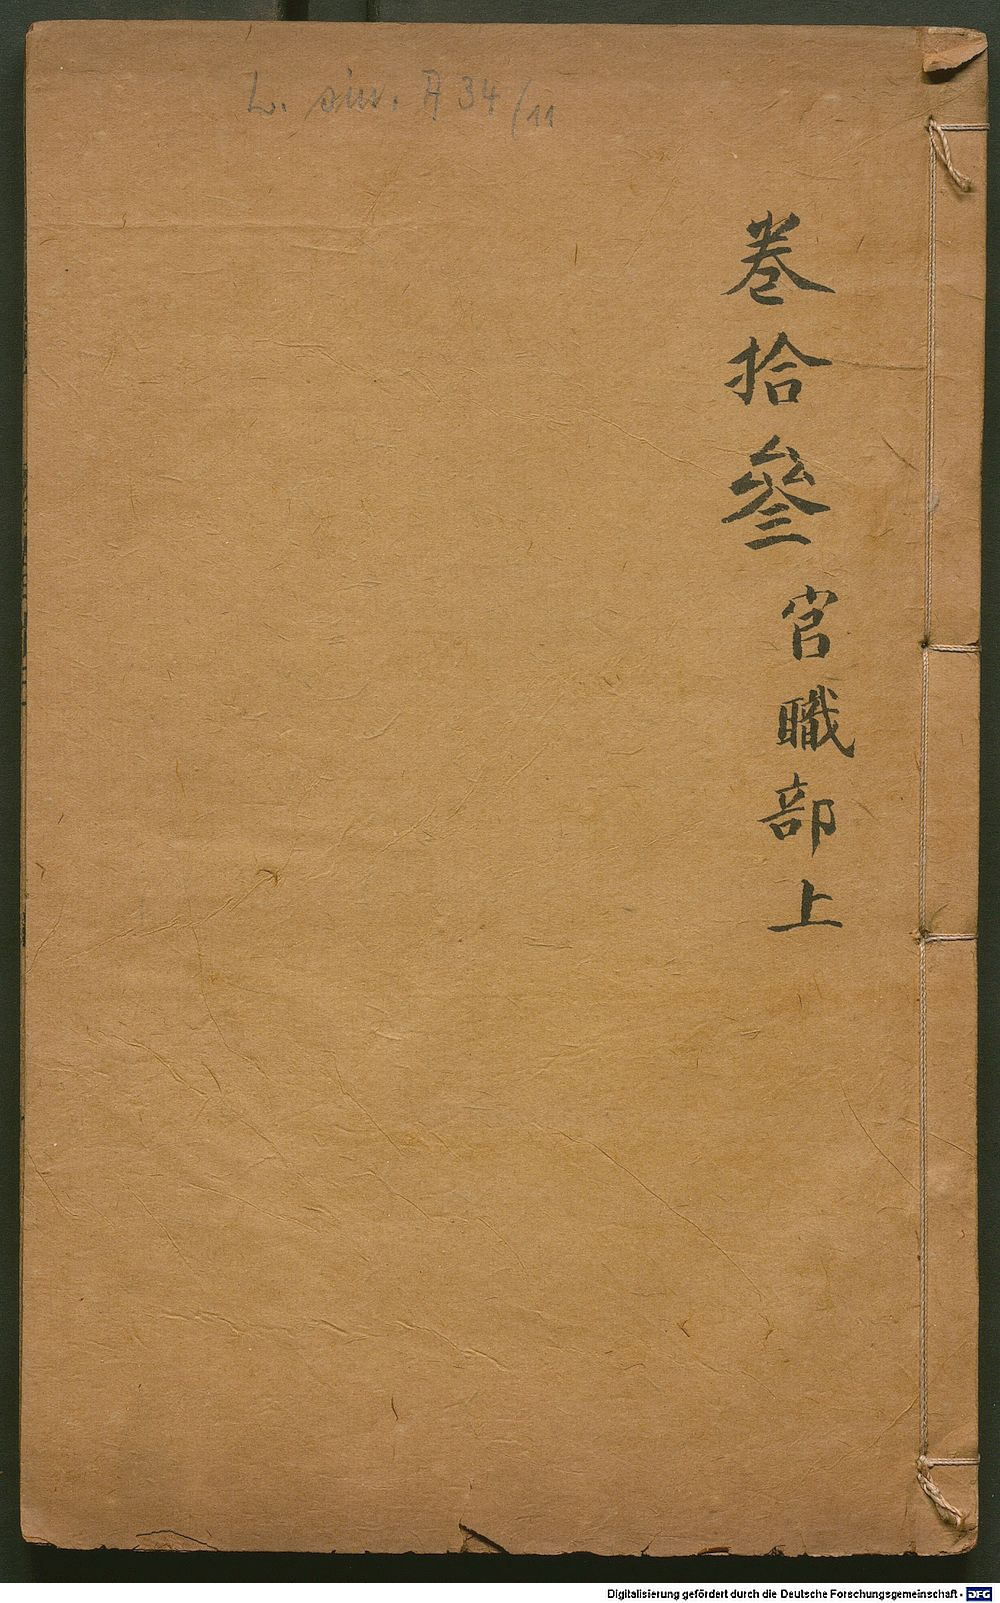 L. sin. A 34/11
卷拾叄 官職部上
Digitalisierung gefördert durch die Deutsche Forschungsgemeinschaft - DFG